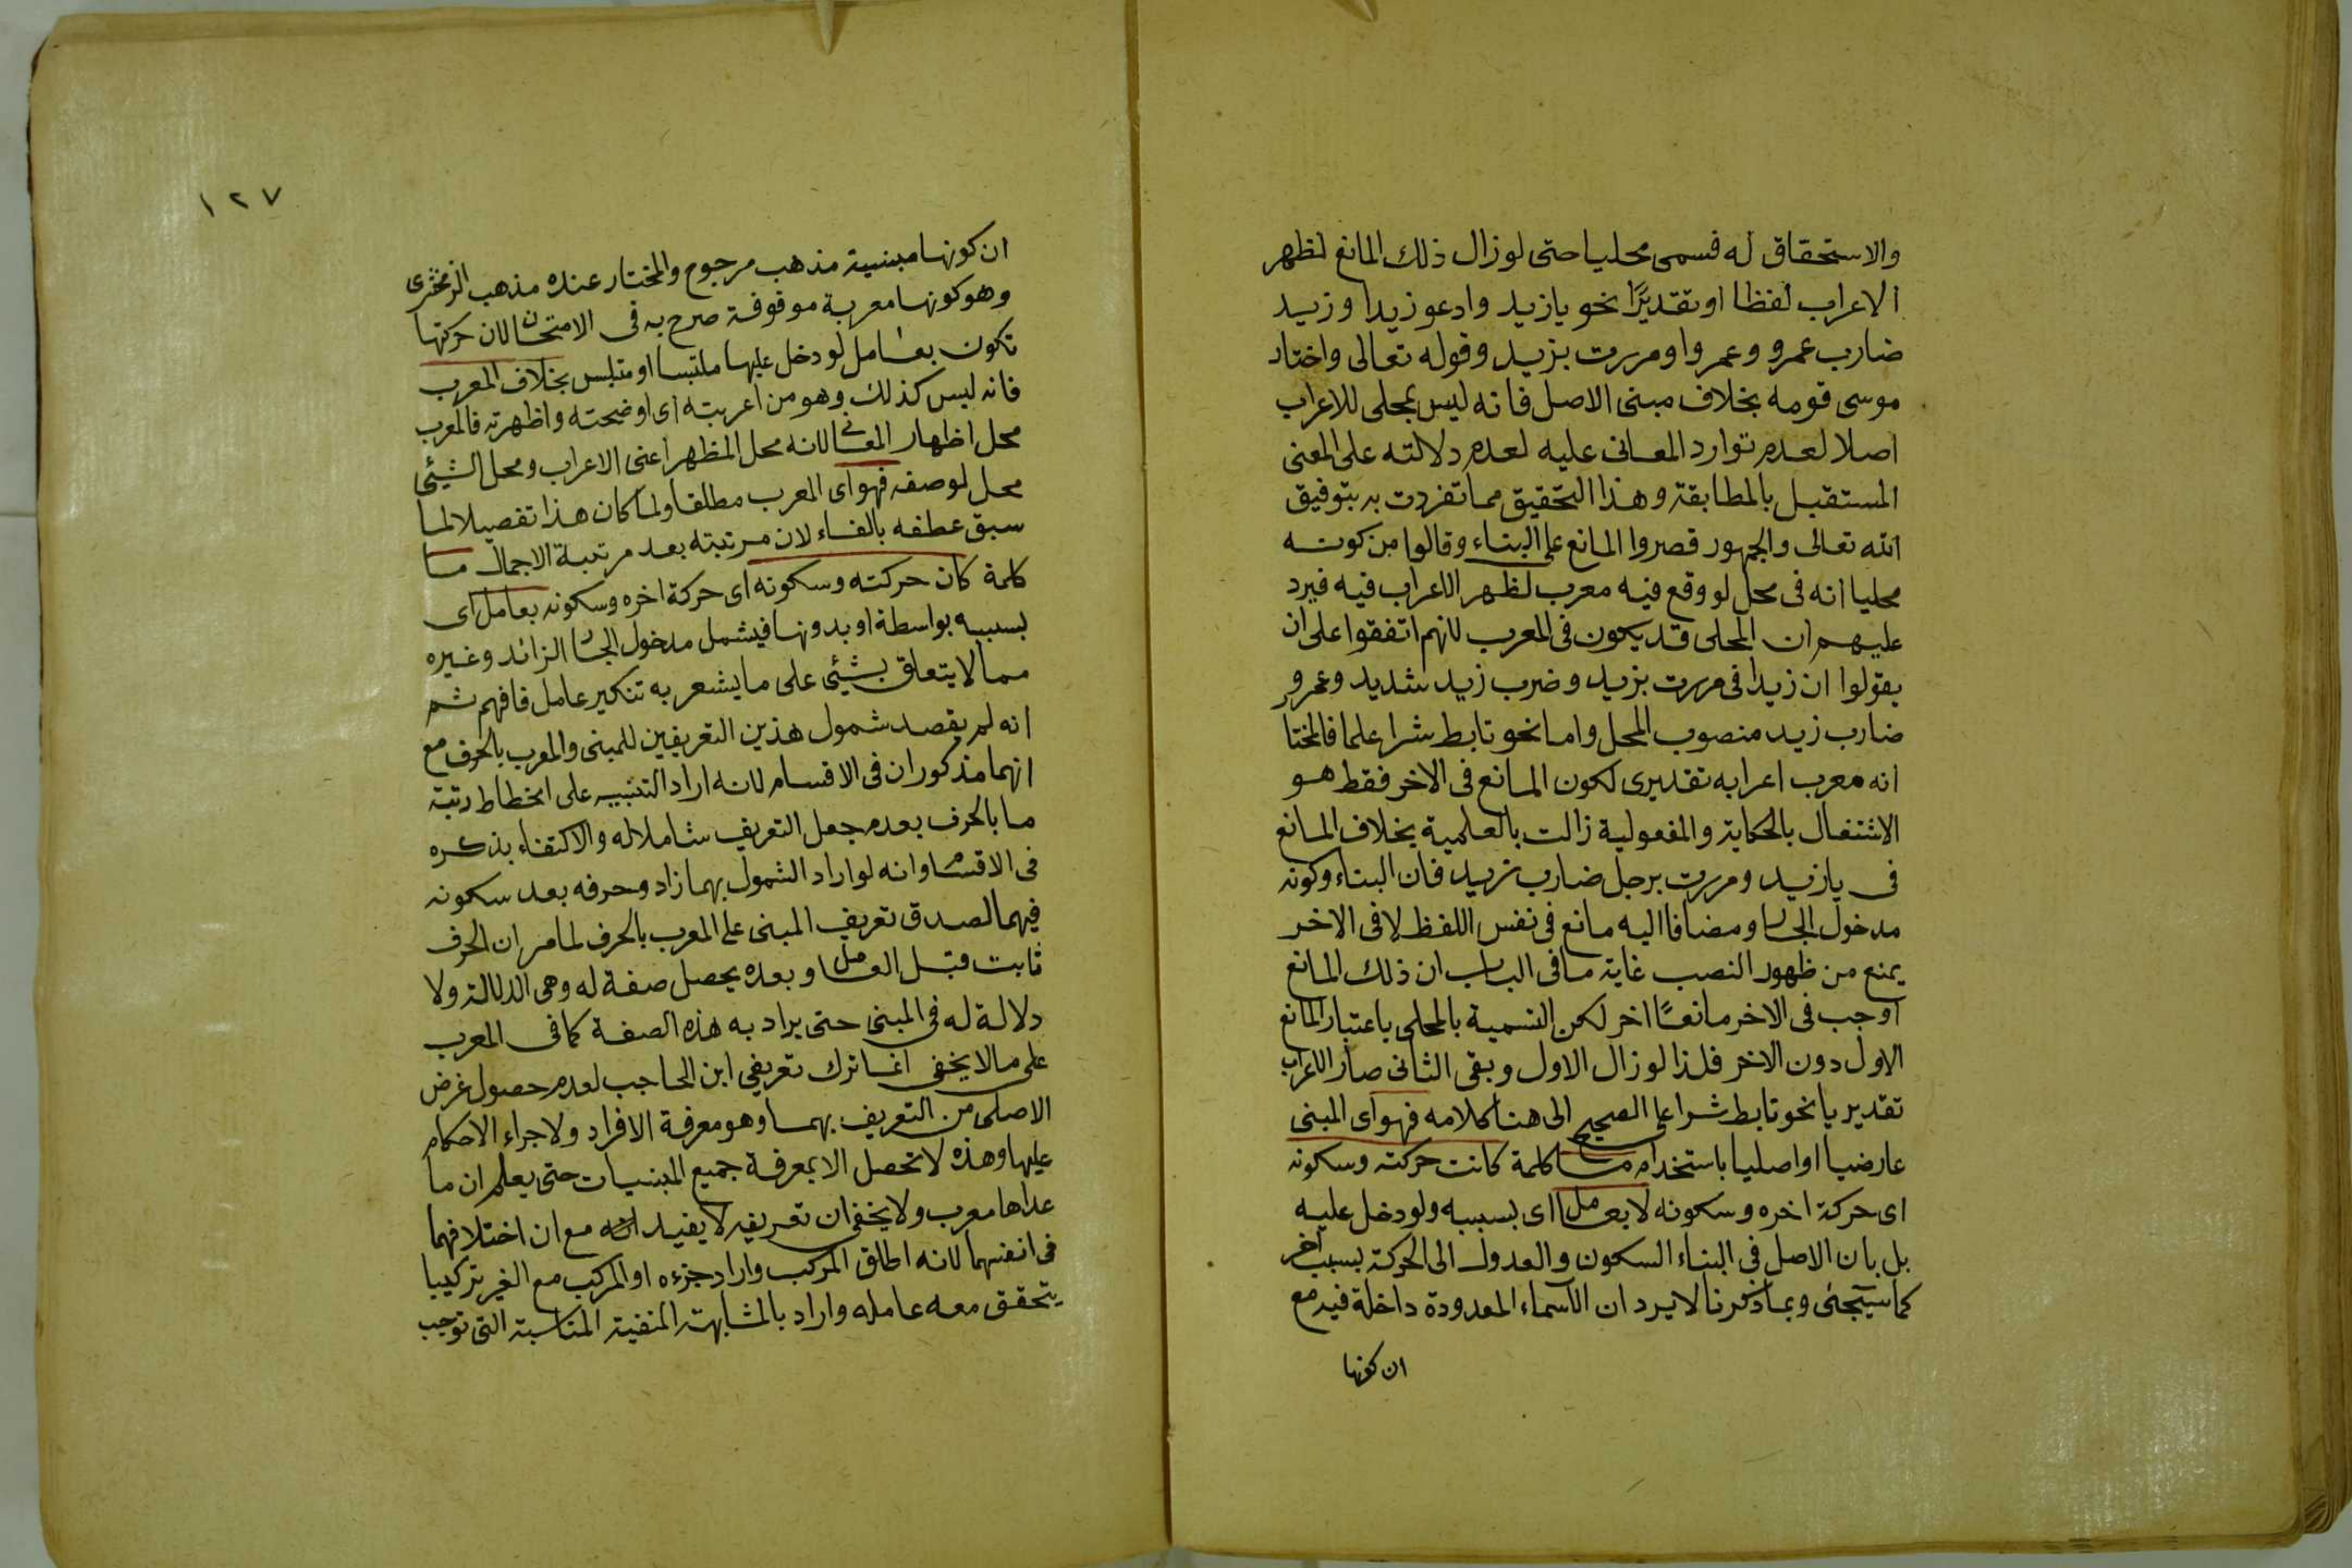 والاستحقاق له فسمى محليا حتى لو زال ذلك المانع لظهر
الاعراب لفظا او تقديرًا نحو يا زيد وادعو زيدا وزيد
ضارب عمرو وعمروا ومررت بزيد وقوله تعالى واختار
موسى قومه بخلاف مبنى الاصل فانه ليس بمحلى للاعراب
اصلا لعدم توارد المعانى عليه لعدم دلالته على المعنى
المستقبل بالمطابقة وهذا التحقيق مما تفردت به بتوفيق
الله تعالى والجمهور قصروا المانع على البناء وقالوا من كونه
محليا انه فى محل لو وقع فيه معرب لظهر الاعراب فيه فيرد
عليهم ان المحلى قد يكون فى المعرب لانهم اتفقوا على ان
يقولوا ان زيدا فى مررت بزيد وضرب زيد شديد وعمرو
ضارب زيد منصوب المحل واما نحو تابط شرا علما فالمختا
انه معرب اعرابه تقديرى لكون المانع فى الاخر فقط هو
الاشتغال بالحكاية والمفعولية زالت بالعلمية بخلاف المانع
فى يا زيد ومررت برجل ضارب زيد فان البناء وكونه
مدخول الجار ومضافا اليه مانع فى نفس اللفظ لا فى الاخر
يمنع من ظهور النصب غاية ما فى الباب ان ذلك المانع
اوجب فى الاخر مانعًا اخر لكن التسمية بالمحلى باعتبار المانع
الاول دون الاخر فلذا لو زال الاول وبقى الثانى صار الاعراب
تقديريا نحو تابط شرا على الصحيح الى هنا كلامه فهو اى المبنى
عارضيا او اصليا باستخدام ما كلمة كانت حركته وسكونه
اى حركة اخره وسكونه لا بعامل اى بسببه ولو دخل عليه
بل بان الاصل فى البناء السكون والعدول الى الحركة بسبب اخر
كما سيجئى وبما ذكرنا لا يرد ان الاسماء المعدودة داخلة فيه مع
ان كونها
١٢٧
ان كونها مبنية مذهب مرجوح والمختار عنده مذهب الزمخشرى
وهو كونها معربة موقوفة صرح به فى الامتحان لان حركتها
تكون بعامل لو دخل عليها ملتبسا او متلبس بخلاف المعرب
فانه ليس كذلك وهو من اعربته اى اوضحته واظهرته فالمعرب
محل اظهار المعانى لانه محل المظهر اعنى الاعراب ومحل الشيئى
محل لوصفه فهو اى المعرب مطلقا ولما كان هذا تفصيلا لما
سبق عطفه بالفاء لان مرتبته بعد مرتبة الاجمال ما
كلمة كان حركته وسكونه اى حركة اخره وسكونه بعامل اى
بسببه بواسطة او بدونها فيشمل مدخول الجار الزائد وغيره
مما لا يتعلق بشيئى على ما يشعر به تنكير عامل فافهم ثم
انه لم يقصد شمول هذين التعريفين للمبنى والمعرب بالحرف مع
انهما مذكوران فى الاقسام لانه اراد التنبيه على انحطاط رتبة
ما بالحرف بعدم جعل التعريف شاملا له والاكتفاء بذكره
فى الاقسام وانه لو اراد الشمول بهما زاد وحرفه بعد سكونه
فيهما لصدق تعريف المبنى على المعرب بالحرف لما مر ان الحرف
ثابت قبل العامل وبعده يحصل صفة له وهى الدلالة ولا
دلالة له فى المبنى حتى يراد به هذه الصفة كما فى المعرب
على ما لا يخفى انما ترك تعريفى ابن الحاجب لعدم حصول غرض
الاصلى من التعريف بهما وهو معرفة الافراد ولاجراء الاحكام
عليها وهذه لا تحصل الا بمعرفة جميع المبنيات حتى يعلم ان ما
عداها معرب ولا يخفى ان تعريفيه لا يفيد مع ان اختلافهما
فى انفسهما لانه اطلق المركب واراد جزءه او المركب مع الغير تركيبا
يتحقق معه عامله واراد بالمشابهة المنفية المناسبة التى توجب